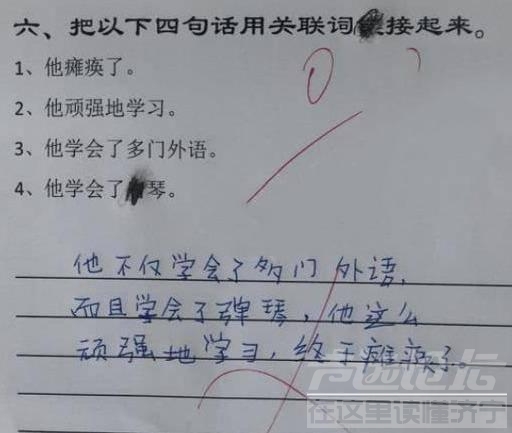 六、把以下四句话用关联词接起来。
1、他瘫痪了。
2、他顽强地学习。
3、他学会了多门外语。
4、他学会了琴。
他不仅学会了多门外语，
而且学会了弹琴，他这么
顽强地学习，终于瘫痪了。
在这里读懂济宁